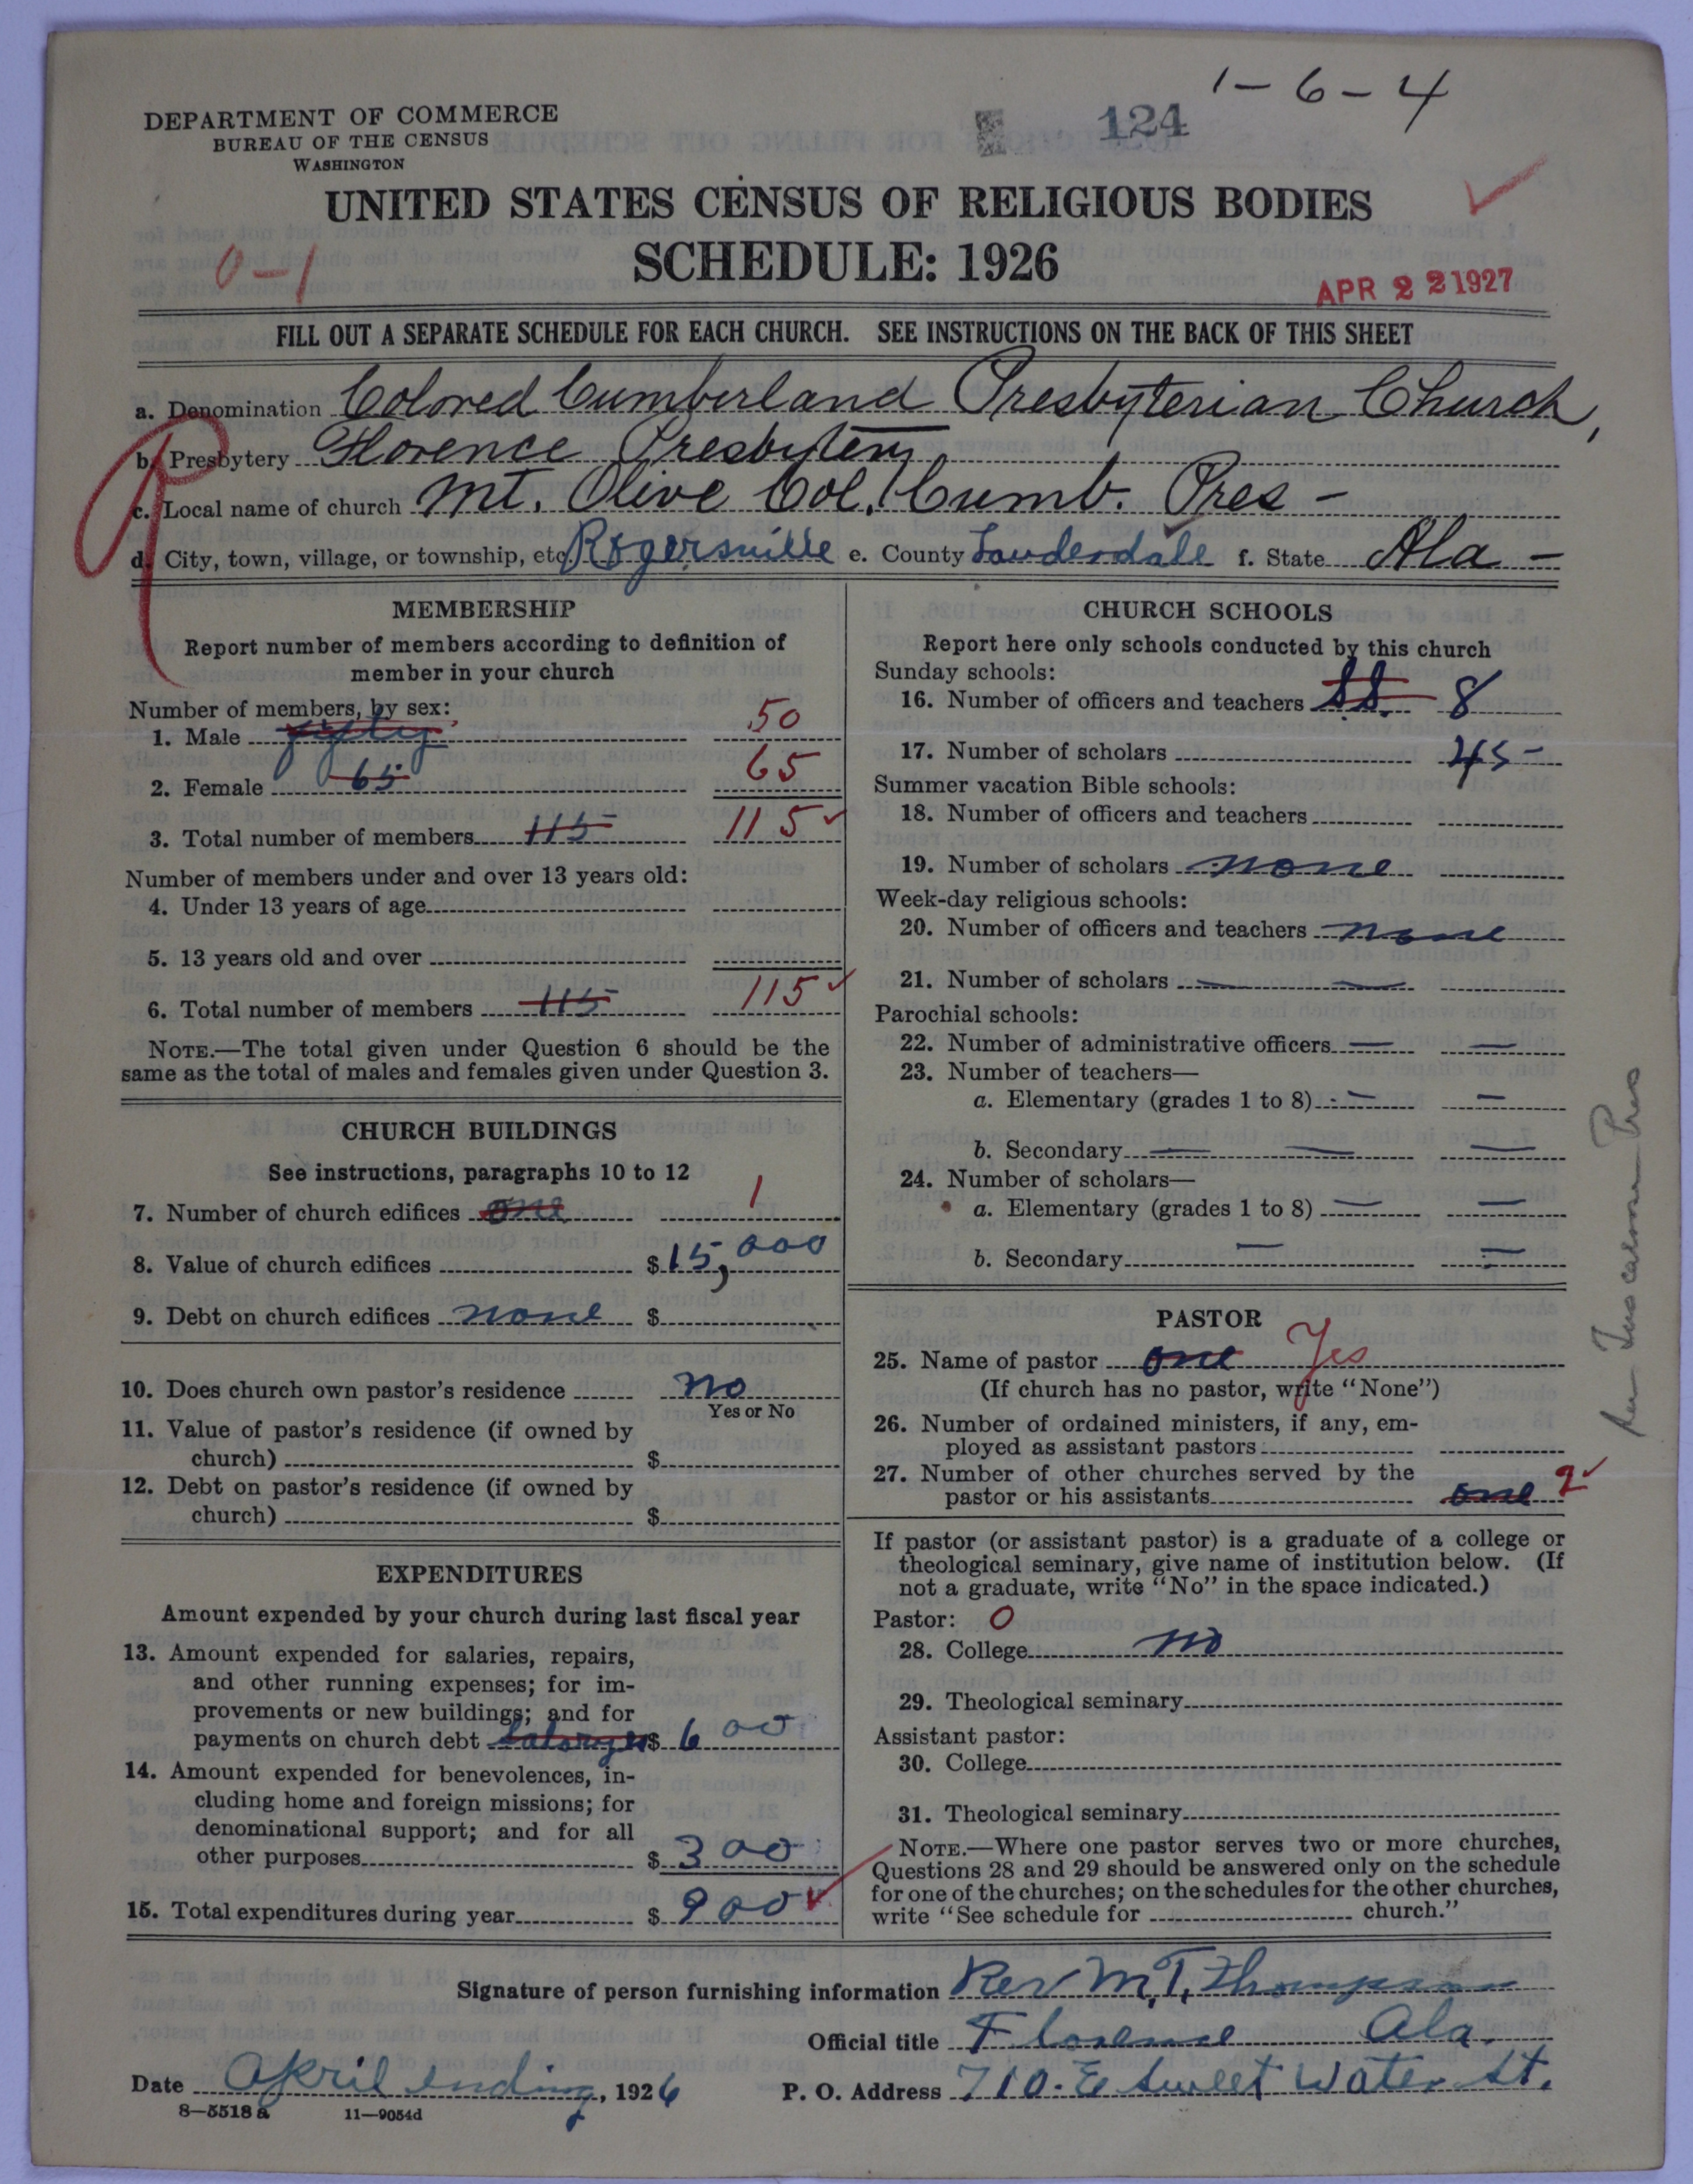 1-6-4
DEPARTMENT OF COMMERCE
BUREAU OF THE CENSUS
WASHINGTON
124
UNITED STATES CENSUS OF RELIGIOUS BODIES
SCHEDULE: 1926
0-1
APR 22 1927
FILL OUT A SEPARATE SCHEDULE FOR EACH CHURCH. SEE INSTRUCTIONS ON THE BACK OF THIS SHEET
a. Denomination Colored Cumberland Presbyterian Church,
b. Presbytery Florence Presbytery
c. Local name of church Mt. Olive Col. Cumb. Pres -
d. City, town, village, or township, etc. Rogersville e. County Lauderdale f. State Ala -
MEMBERSHIP
Report number of members according to definition of
member in your church
Number of members, by sex:
1. Male fifty 50
2. Female 65 65
3. Total number of members 115 115
Number of members under and over 13 years old:
4. Under 13 years of age
5. 13 years old and over
6. Total number of members 115 115
NOTE.—The total given under Question 6 should be the
same as the total of males and females given under Question 3.
CHURCH BUILDINGS
See instructions, paragraphs 10 to 12
7. Number of church edifices one 1
8. Value of church edifices $ 15,000
9. Debt on church edifices none $
10. Does church own pastor's residence no
Yes or No
11. Value of pastor's residence (if owned by
church) $
12. Debt on pastor's residence (if owned by
church) $
EXPENDITURES
Amount expended by your church during last fiscal year
13. Amount expended for salaries, repairs,
and other running expenses; for im-
provements or new buildings; and for
payments on church debt $ 600
14. Amount expended for benevolences, in-
cluding home and foreign missions; for
denominational support; and for all
other purposes $ 300
15. Total expenditures during year $ 900
CHURCH SCHOOLS
Report here only schools conducted by this church
Sunday schools:
16. Number of officers and teachers S.S. 8
17. Number of scholars 45-
Summer vacation Bible schools:
18. Number of officers and teachers
19. Number of scholars none
Week-day religious schools:
20. Number of officers and teachers none
21. Number of scholars — —
Parochial schools:
22. Number of administrative officers — —
23. Number of teachers—
a. Elementary (grades 1 to 8) — —
b. Secondary — — —
24. Number of scholars—
a. Elementary (grades 1 to 8) — —
b. Secondary — —
PASTOR
25. Name of pastor one Yes
(If church has no pastor, write "None")
26. Number of ordained ministers, if any, em-
ployed as assistant pastors
27. Number of other churches served by the
pastor or his assistants one 2
If pastor (or assistant pastor) is a graduate of a college or
theological seminary, give name of institution below. (If
not a graduate, write "No" in the space indicated.)
Pastor: 0
28. College no
29. Theological seminary
Assistant pastor:
30. College
31. Theological seminary
NOTE.—Where one pastor serves two or more churches,
Questions 28 and 29 should be answered only on the schedule
for one of the churches; on the schedules for the other churches,
write "See schedule for church."
Signature of person furnishing information Rev M.T. Thompson
Official title Florence Ala.
Date April ending, 1926 P. O. Address 710. E Sweet Water St.
8-5518a 11-9054d